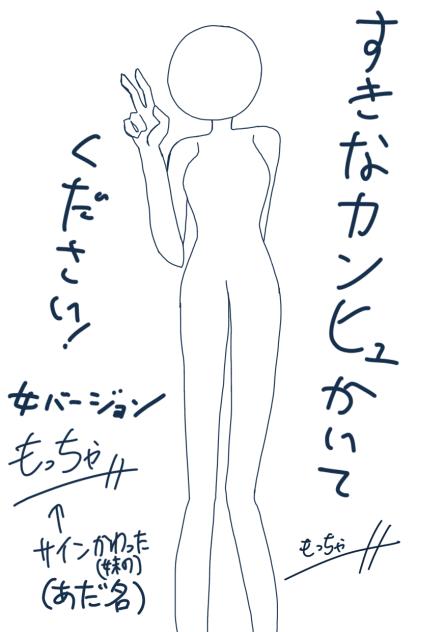 すきなカンヒュかいて
ください!
女バージョン
もっちゃ
↑
サインかわった
(妹の)
(あだ名)
もっちゃ